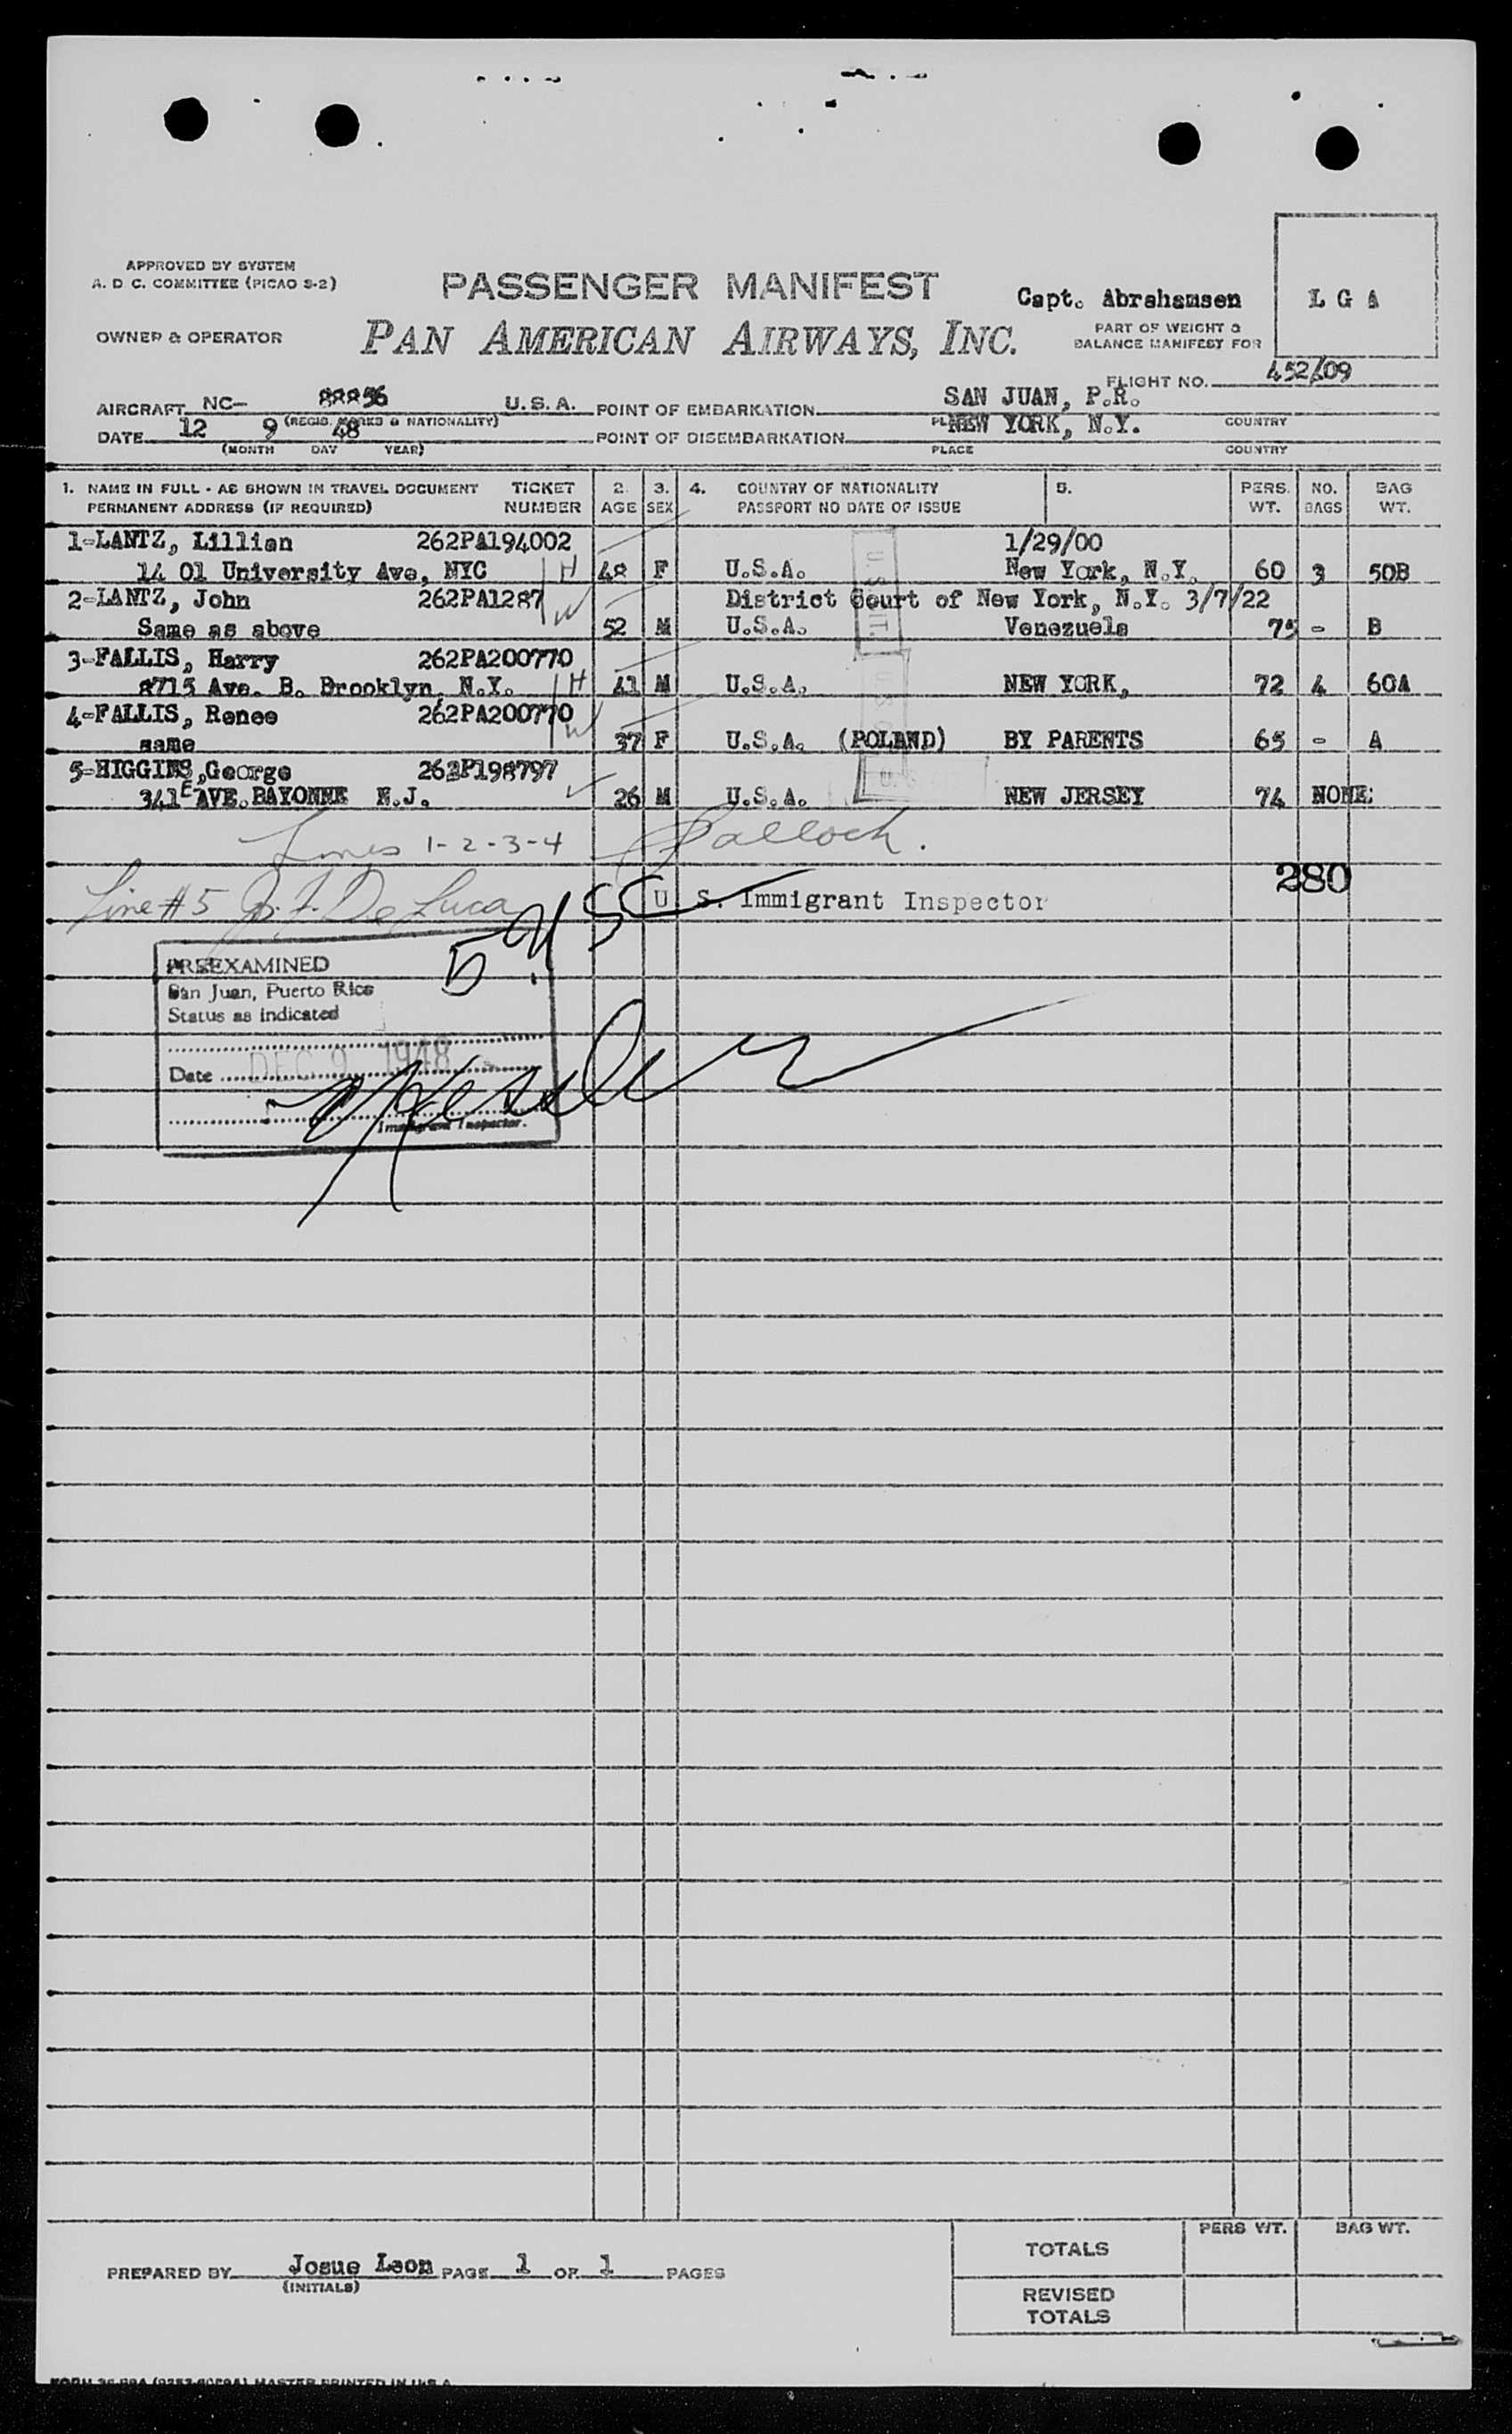 APPROVED BY SYSTEM
A. D C. COMMITTEE (PICAO S-2)
PASSENGER MANIFEST
Capt. Abrahamsen
L G A
OWNER & OPERATOR
PAN AMERICAN AIRWAYS, INC.
PART OF WEIGHT &
BALANCE MANIFEST FOR
FLIGHT NO. 452/09
AIRCRAFT NC- 88856 U.S.A. POINT OF EMBARKATION SAN JUAN, P.R.
(REGIS. MARKS & NATIONALITY) PLACE COUNTRY
DATE 12 9 48 POINT OF DISEMBARKATION NEW YORK, N.Y.
(MONTH DAY YEAR) PLACE COUNTRY
1. NAME IN FULL - AS SHOWN IN TRAVEL DOCUMENT TICKET 2. 3. 4. COUNTRY OF NATIONALITY 5. PERS. NO. BAG
PERMANENT ADDRESS (IF REQUIRED) NUMBER AGE SEX PASSPORT NO DATE OF ISSUE WT. BAGS WT.
1-LANTZ, Lillian 262PA194002 1/29/00
14 01 University Ave, NYC H 48 F U.S.A. New York, N.Y. 60 3 50B
2-LANTZ, John 262PA1287 District Court of New York, N.Y. 3/7/22
Same as above W 52 M U.S.A. Venezuela 75 - B
3-FALLIS, Harry 262PA200770
8715 Ave. B. Brooklyn, N.Y. H 41 M U.S.A. NEW YORK, 72 4 60A
4-FALLIS, Renee 262PA200770
same W 37 F U.S.A. (POLAND) BY PARENTS 65 - A
5-HIGGINS,George 262P198797
341 E AVE. BAYONNE N.J. 26 M U.S.A. NEW JERSEY 74 NONE
Lines 1-2-3-4
280
Line #5 De Luca U S. Immigrant Inspector
5 USC
PREEXAMINED
San Juan, Puerto Rico
Status as indicated
Date DEC 9 1948
Immigrant Inspector.
PERS WT. BAG WT.
TOTALS
PREPARED BY Josue Leon PAGE 1 OF 1 PAGES
(INITIALS)
REVISED
TOTALS